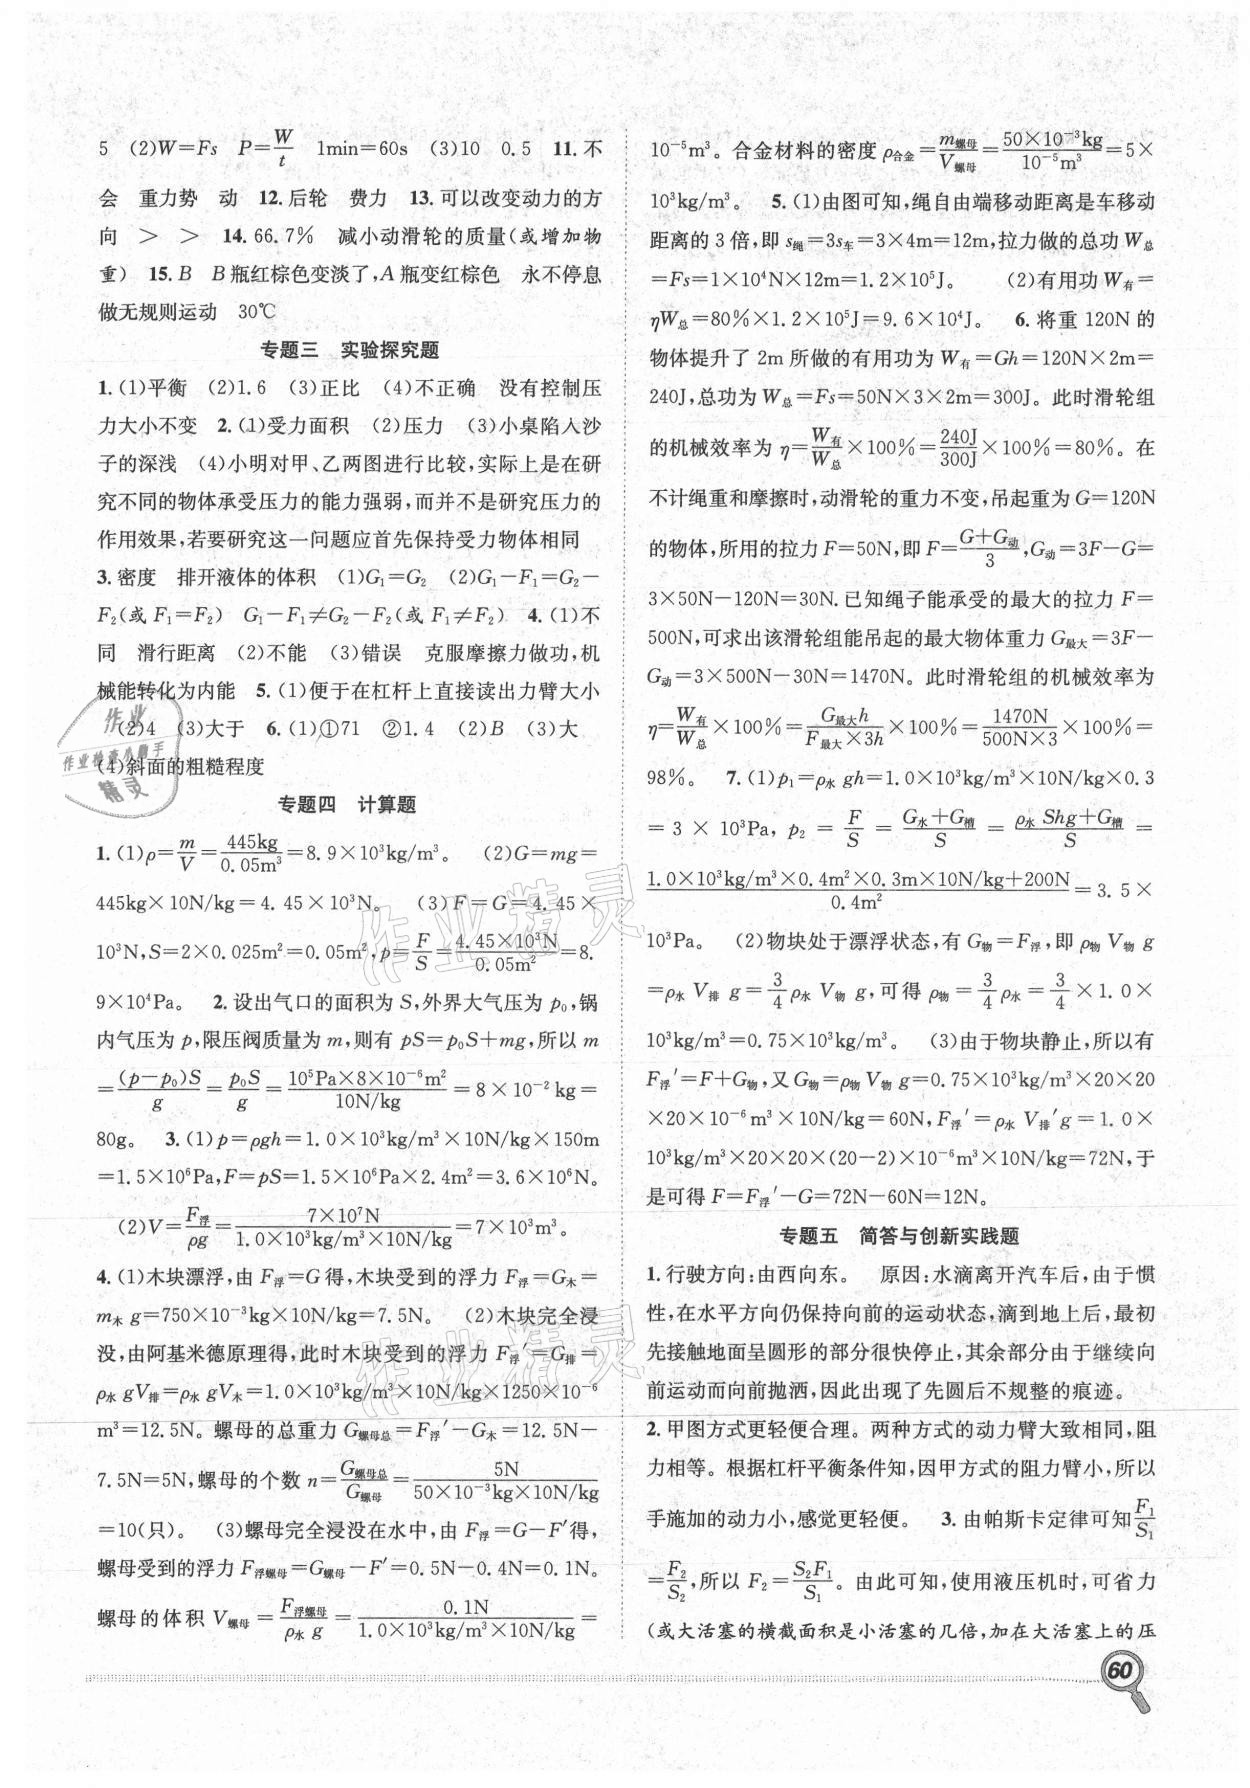 5　(2)W=Fs　P=W/t　1min=60s　(3)10　0.5　11.不
会　重力势　动　12.后轮　费力　13.可以改变动力的方
向　>　>　14.66.7%　减小动滑轮的质量(或增加物
重)　15.B　B瓶红棕色变淡了,A瓶变红棕色　永不停息
做无规则运动　30℃
专题三　实验探究题
1.(1)平衡　(2)1.6　(3)正比　(4)不正确　没有控制压
力大小不变　2.(1)受力面积　(2)压力　(3)小桌陷入沙
子的深浅　(4)小明对甲、乙两图进行比较,实际上是在研
究不同的物体承受压力的能力强弱,而并不是研究压力的
作用效果,若要研究这一问题应首先保持受力物体相同
3.密度　排开液体的体积　(1)G₁=G₂　(2)G₁-F₁=G₂-
F₂(或F₁=F₂)　G₁-F₁≠G₂-F₂(或F₁≠F₂)　4.(1)不
同　滑行距离　(2)不能　(3)错误　克服摩擦力做功,机
械能转化为内能　5.(1)便于在杠杆上直接读出力臂大小
(2)4　(3)大于　6.(1)①71　②1.4　(2)B　(3)大
(4)斜面的粗糙程度
专题四　计算题
1.(1)ρ=m/V=445kg/0.05m³=8.9×10³kg/m³。　(2)G=mg=
445kg×10N/kg=4.45×10³N。　(3)F=G=4.45×
10³N,S=2×0.025m²=0.05m²,p=F/S=4.45×10³N/0.05m²=8.
9×10⁴Pa。　2.设出气口的面积为S,外界大气压为p₀,锅
内气压为p,限压阀质量为m,则有pS=p₀S+mg,所以m
=(p-p₀)S/g=p₀S/g=10⁵Pa×8×10⁻⁶m²/10N/kg=8×10⁻²kg=
80g。　3.(1)p=ρgh=1.0×10³kg/m³×10N/kg×150m
=1.5×10⁶Pa,F=pS=1.5×10⁶Pa×2.4m²=3.6×10⁶N。
(2)V=F浮/ρg=7×10⁷N/1.0×10³kg/m³×10N/kg=7×10³m³。
4.(1)木块漂浮,由F浮=G得,木块受到的浮力F浮=G木=
m木g=750×10⁻³kg×10N/kg=7.5N。　(2)木块完全浸
没,由阿基米德原理得,此时木块受到的浮力F浮′=G排=
ρ水gV排=ρ水gV木=1.0×10³kg/m³×10N/kg×1250×10⁻⁶
m³=12.5N。螺母的总重力G螺母总=F浮′-G木=12.5N-
7.5N=5N,螺母的个数n=G螺母总/G螺母=5N/50×10⁻³kg×10N/kg
=10(只)。　(3)螺母完全浸没在水中,由F浮=G-F′得,
螺母受到的浮力F浮螺母=G螺母-F′=0.5N-0.4N=0.1N。
螺母的体积V螺母=F浮螺母/ρ水g=0.1N/1.0×10³kg/m³×10N/kg=
10⁻⁵m³。合金材料的密度ρ合金=m螺母/V螺母=50×10⁻³kg/10⁻⁵m³=5×
10³kg/m³。　5.(1)由图可知,绳自由端移动距离是车移动
距离的3倍,即s绳=3s车=3×4m=12m,拉力做的总功W总
=Fs=1×10⁴N×12m=1.2×10⁵J。　(2)有用功W有=
ηW总=80%×1.2×10⁵J=9.6×10⁴J。　6.将重120N的
物体提升了2m所做的有用功为W有=Gh=120N×2m=
240J,总功为W总=Fs=50N×3×2m=300J。此时滑轮组
的机械效率为η=W有/W总×100%=240J/300J×100%=80%。在
不计绳重和摩擦时,动滑轮的重力不变,吊起重为G=120N
的物体,所用的拉力F=50N,即F=G+G动/3,G动=3F-G=
3×50N-120N=30N.已知绳子能承受的最大的拉力F=
500N,可求出该滑轮组能吊起的最大物体重力G最大=3F-
G动=3×500N-30N=1470N。此时滑轮组的机械效率为
η=W有/W总×100%=G最大h/F最大×3h×100%=1470N/500N×3×100%=
98%。　7.(1)p₁=ρ水gh=1.0×10³kg/m³×10N/kg×0.3
=3×10³Pa,p₂=F/S=G水+G槽/S=ρ水Shg+G槽/S=
1.0×10³kg/m³×0.4m²×0.3m×10N/kg+200N/0.4m²=3.5×
10³Pa。　(2)物块处于漂浮状态,有G物=F浮,即ρ物V物g
=ρ水V排g=3/4ρ水V物g,可得ρ物=3/4ρ水=3/4×1.0×
10³kg/m³=0.75×10³kg/m³。　(3)由于物块静止,所以有
F浮′=F+G物,又G物=ρ物V物g=0.75×10³kg/m³×20×20
×20×10⁻⁶m³×10N/kg=60N,F浮′=ρ水V排′g=1.0×
10³kg/m³×20×20×(20-2)×10⁻⁶m³×10N/kg=72N,于
是可得F=F浮′-G=72N-60N=12N。
专题五　简答与创新实践题
1.行驶方向:由西向东。　原因:水滴离开汽车后,由于惯
性,在水平方向仍保持向前的运动状态,滴到地上后,最初
先接触地面呈圆形的部分很快停止,其余部分由于继续向
前运动而向前抛洒,因此出现了先圆后不规整的痕迹。
2.甲图方式更轻便合理。两种方式的动力臂大致相同,阻
力相等。根据杠杆平衡条件知,因甲方式的阻力臂小,所以
手施加的动力小,感觉更轻便。　3.由帕斯卡定律可知F₁/S₁
=F₂/S₂,所以F₂=S₂F₁/S₁。由此可知,使用液压机时,可省力
(或大活塞的横截面积是小活塞的几倍,加在大活塞上的压
60
作业
作业检查小助手
精灵
作业精灵
作业精灵